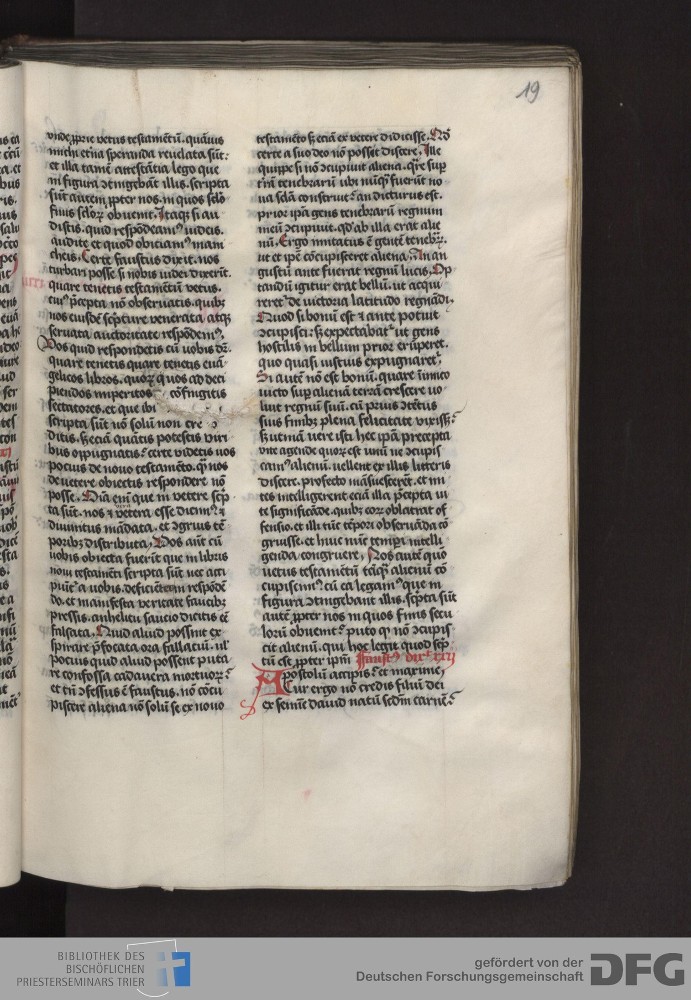 19
vnde ꝓprie vetus testamētū. quāuis
michi etiā speranda reuelata sūt:
et illa tamē attestātia lego que
in figura ↄtingebāt illis. scripta
sūt autem ꝓpter nos. in quos sclōꝝ
finis sclōꝝ obuenit. Itaqꝫ si au
distis. quid respōdeamꝰ iudeis.
audite et quod obiciamꝰ mani
cheis. Certe faustus dixit. nos
turbari posse si nobis iudei dixerīt.
quare tenetis testamētū vetus.
cuiꝰ p̄cepta nō obseruatis. quibꝫ
nos eiusdē scᵽture venerata atqꝫ
seruata auctoritate respōdemꝰ.
Vos quid respondetis cū vobis dr̄.
quare tenetis quare tenetis euā
gelicos libros. quoꝝ q̄ uos ad deci
piendos imperitos cōfingitis
sectatores. et que ibi
scripta sūt nō solū non cre
ditis. sꝫ eciā quātis potestis viri
bus oppugnatis: certe videtis vos
pocius de nouo testamēto. qͣ nos
de vetere obiectis respondere nō
posse. Oīa eīm que in vetere scᵽ
ta sūt. nos ⁊ vetera esse dicimꝰ ⁊
diuinitus mādata. et ↄgrius tē
poribꝫ distributa. Vos aūt cū
vobis obiecta fuerīt que in libris
noui testamēti scripta sūt nec acci
piūtᷣ a vobis. deficiētem respōdē
do. et manifesta veritate faucibꝫ
pressis. anhelitu saucio dicitis eē
falsata. Quid aliud possint ex
spirare p̄focata ora fallaciū. ul̄
pocius quid aliud possent puta
re confossa cadauera mortuoꝝ:
et tn̄ ↄfessus ē faustus. nō cōcu
piscere aliena nō solū se ex nouo
testamēto sꝫ eciā ex vetere didicisse. Nō
certe a suo deo nō posset discere. Ille
quippe si nō ↄcupiuit aliena. qͣre sup̄
tr̄rā tenebrarū ubi nūqͣ fuerūt no
ua sclā construit: an dicturus est.
prior ip̄a gens tenebrarū regnum
meū ↄcupiuit. qd̓ ab illa erat alie
nū. Ergo imitatus ē gentē tenebrꝝ.
ut et ip̄e cōcupisceret aliena. An an
gustū ante fuerat regnū lucis. Op
tandū igitur erat bellū. ut acqui
reretᷣ de uictoria latitudo regnādi.
Quod si bonū est ⁊ ante potuit
ↄcupisci: sꝫ expectabatᷣ ut gens
hostilis in bellum prior erūperet.
quo quasi iustius expugnaretᷣ.
Si autē nō est bonū. quare inimico
uicto sup̄ alienā terrā crescere vo
luit regnū suū. cū prius ↄtētus
suis finibꝫ plena felicitate vixiss̄:
sꝫ utinā uere isti hec ip̄a precepta
vite agende quoꝝ est unū ne ↄcupis
camꝰ alienū. uellent ex illis litteris
discere. profecto māsuescerēt. et mi
tes intelligerent eciā illa p̄cepta vi
te significāde. quibꝫ eoꝝ oblatrat of
fensio. et illi tūc tēpori obseruāda cō
gruisse. et huic nūc tempi intelli
genda congruere. Nos autē quō
vetus testamētū tāqꝫ alienū cō
cupiscimꝰ cū ea legamꝰ que in
figura ↄtingebant illis. scᵽta sūt
autē ꝓpter nos in quos finis secu
lorū obuenit: puto qͥ nō ↄcupis
cit alienū. qui hoc legit quod scᵽ
tū est ꝓpter ip̄m Faustꝰ dixᵗ xxij
Apostolū accipis: et maxime.
Cur ergo nō credis filiū dei
ex semine dauid natū scdm̄ carnē:
BIBLIOTHEK DES
BISCHÖFLICHEN
PRIESTERSEMINARS TRIER
gefördert von der
Deutschen Forschungsgemeinschaft
DFG